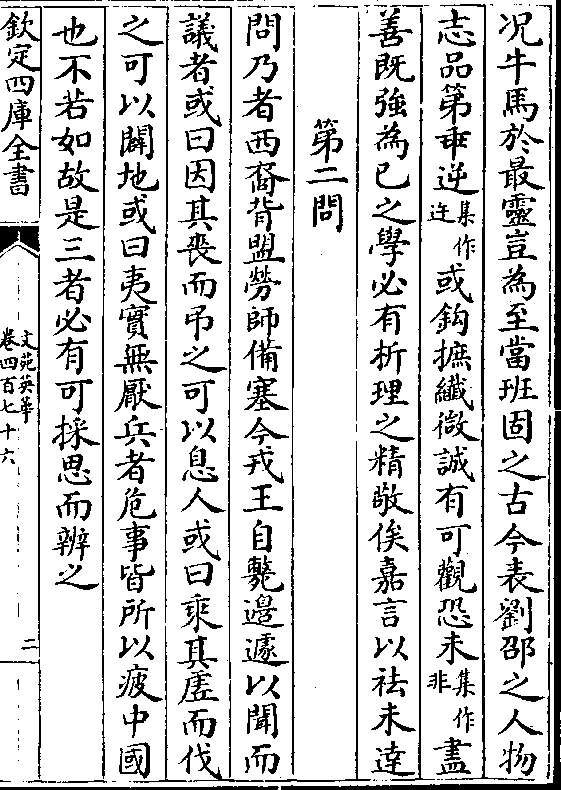 况牛馬於最靈豈為至當班固之古今表劉邵之人物
志品第乖逆集作迕或鈎摭纎微誠有可觀恐未集作非盡
善既強為已之學必有析理之精敬俟嘉言以祛未達
第二問
問乃者西裔背盟勞師備塞今戎王自斃邊遽以聞而
議者或曰因其喪而弔之可以息人或曰乗其虚而伐
之可以闢地或曰夷實無厭兵者危事皆所以疲中國
也不若如故是三者必有可採思而辨之
欽定四庫全書
文苑英華
卷四百七十六
二